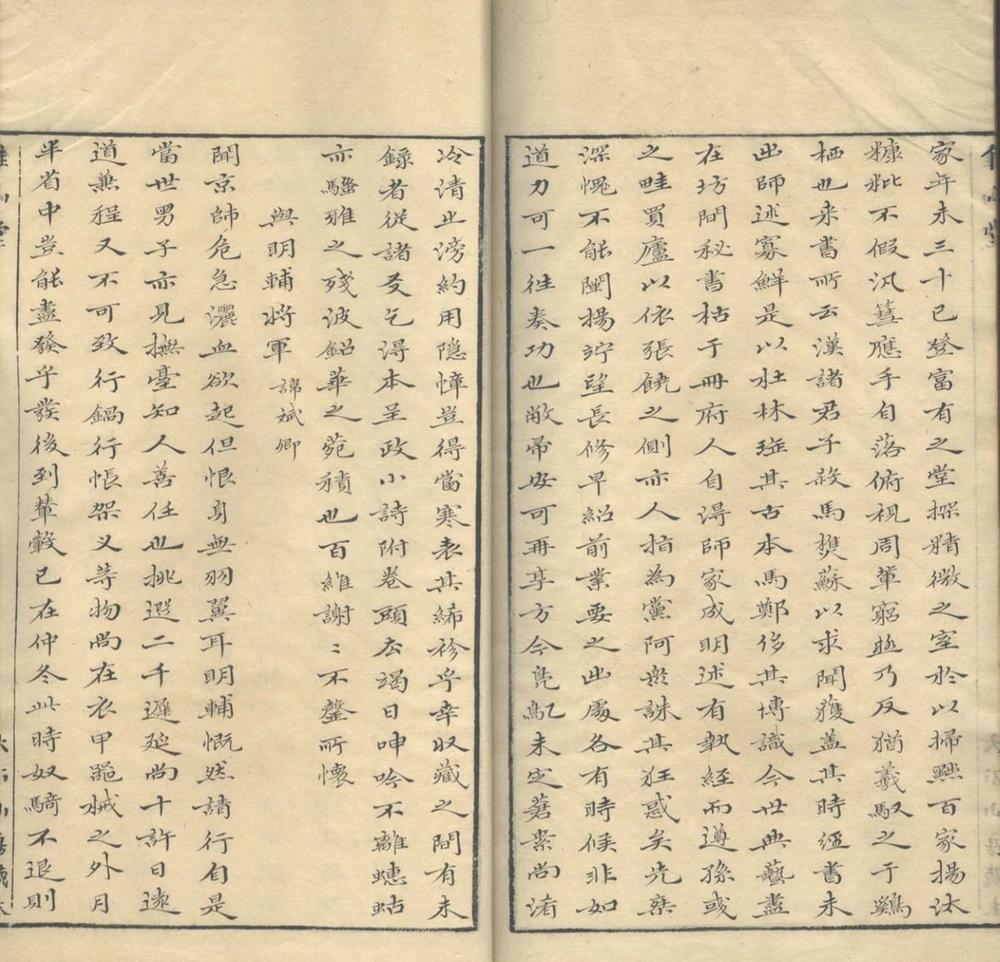 家年未三十已登富有之堂探精微之室於以掃㸃百家揚汰
糠粃不假汎篲應手自落俯視周鞏窮
乃反猶羲馭之于鷄
栖也来書所云漢諸君子殺馬㸑蘇以求聞獲盖其時經書未
出師述寡鮮是以杜林
其古本馬鄭侈其博識今世典藝盡
在坊間秘書枯于冊府人自淂師家成明述有執經而遵孫或
之畦買廬以依張饒之側亦人指為黨阿衆誅其狂惑矣先
深愧不能闡揚竚望長修早紹前業要之出處各有時候非如
道力可一徃奏功也敝帚安可再享方今
未定
尚渚
冷清止滂約用隠
豈得當寒表其絺袗乎幸収藏之間有未
錄者從諸
乞淂本呈政小詩附卷頭去
日呻吟不離蟪蛄
亦騷雅之殘波鉛華之
積也百維謝〻不罄所懷
與明輔将軍 諱斌卿
聞京師危急灑血欲起但恨身無羽翼耳明輔慨然請行自是
當世男子亦見撫臺知人善任也挑選二千遲延尚十許日逺
道兼程又不可致行鍋行帳架义等物尚在衣甲器械之外月
半省中豈能盡發乎發後到輦轂已在仲冬此時奴騎不退則